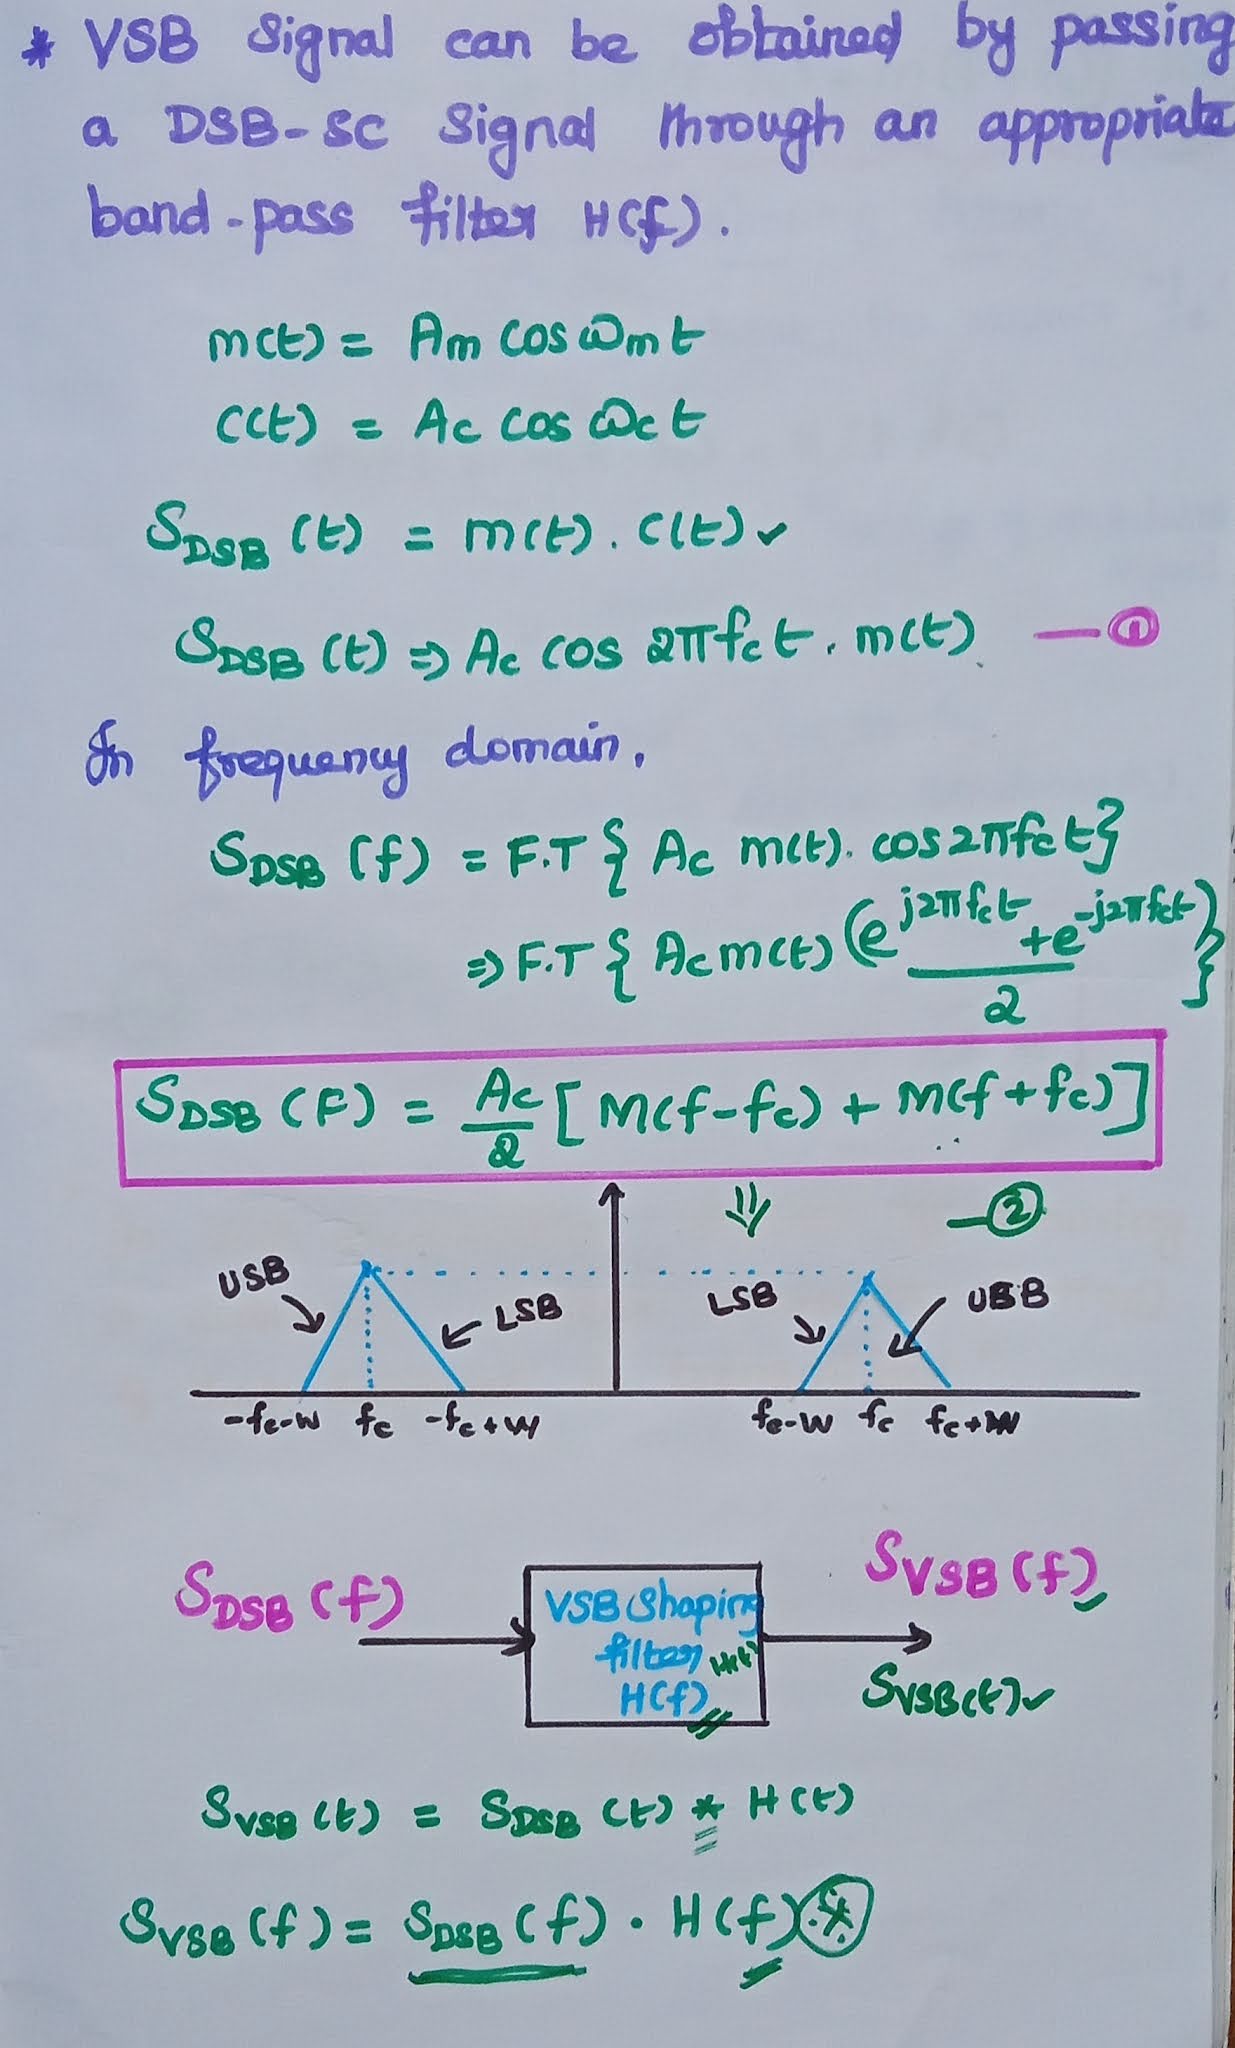 * VSB Signal can be obtained by passing
a DSB-SC Signal through an appropriate
band-pass filter H(f).
m(t) = Am cos ωm t
C(t) = Ac cos ωc t
SDSB (t) = m(t) . C(t) ✓
SDSB (t) ⇒ Ac cos 2πfc t . m(t) — ①
In frequency domain,
SDSB (f) = F.T { Ac m(t). cos 2πfc t}
⇒ F.T { Ac m(t) (e^j2πfct + e^-j2πfct)/2 }
SDSB (F) = Ac/2 [ M(f-fc) + M(f+fc)]
⇓ — ②
USB LSB LSB USB
-fc-W fc -fc+W fc-W fc fc+W
SDSB (f) SVSB (f) ✓
VSB Shaping
filter H(t)
H(f)
SVSB(t) ✓
SVSB (t) = SDSB (t) * H(t)
SVSB (f) = SDSB (f) . H(f) ※